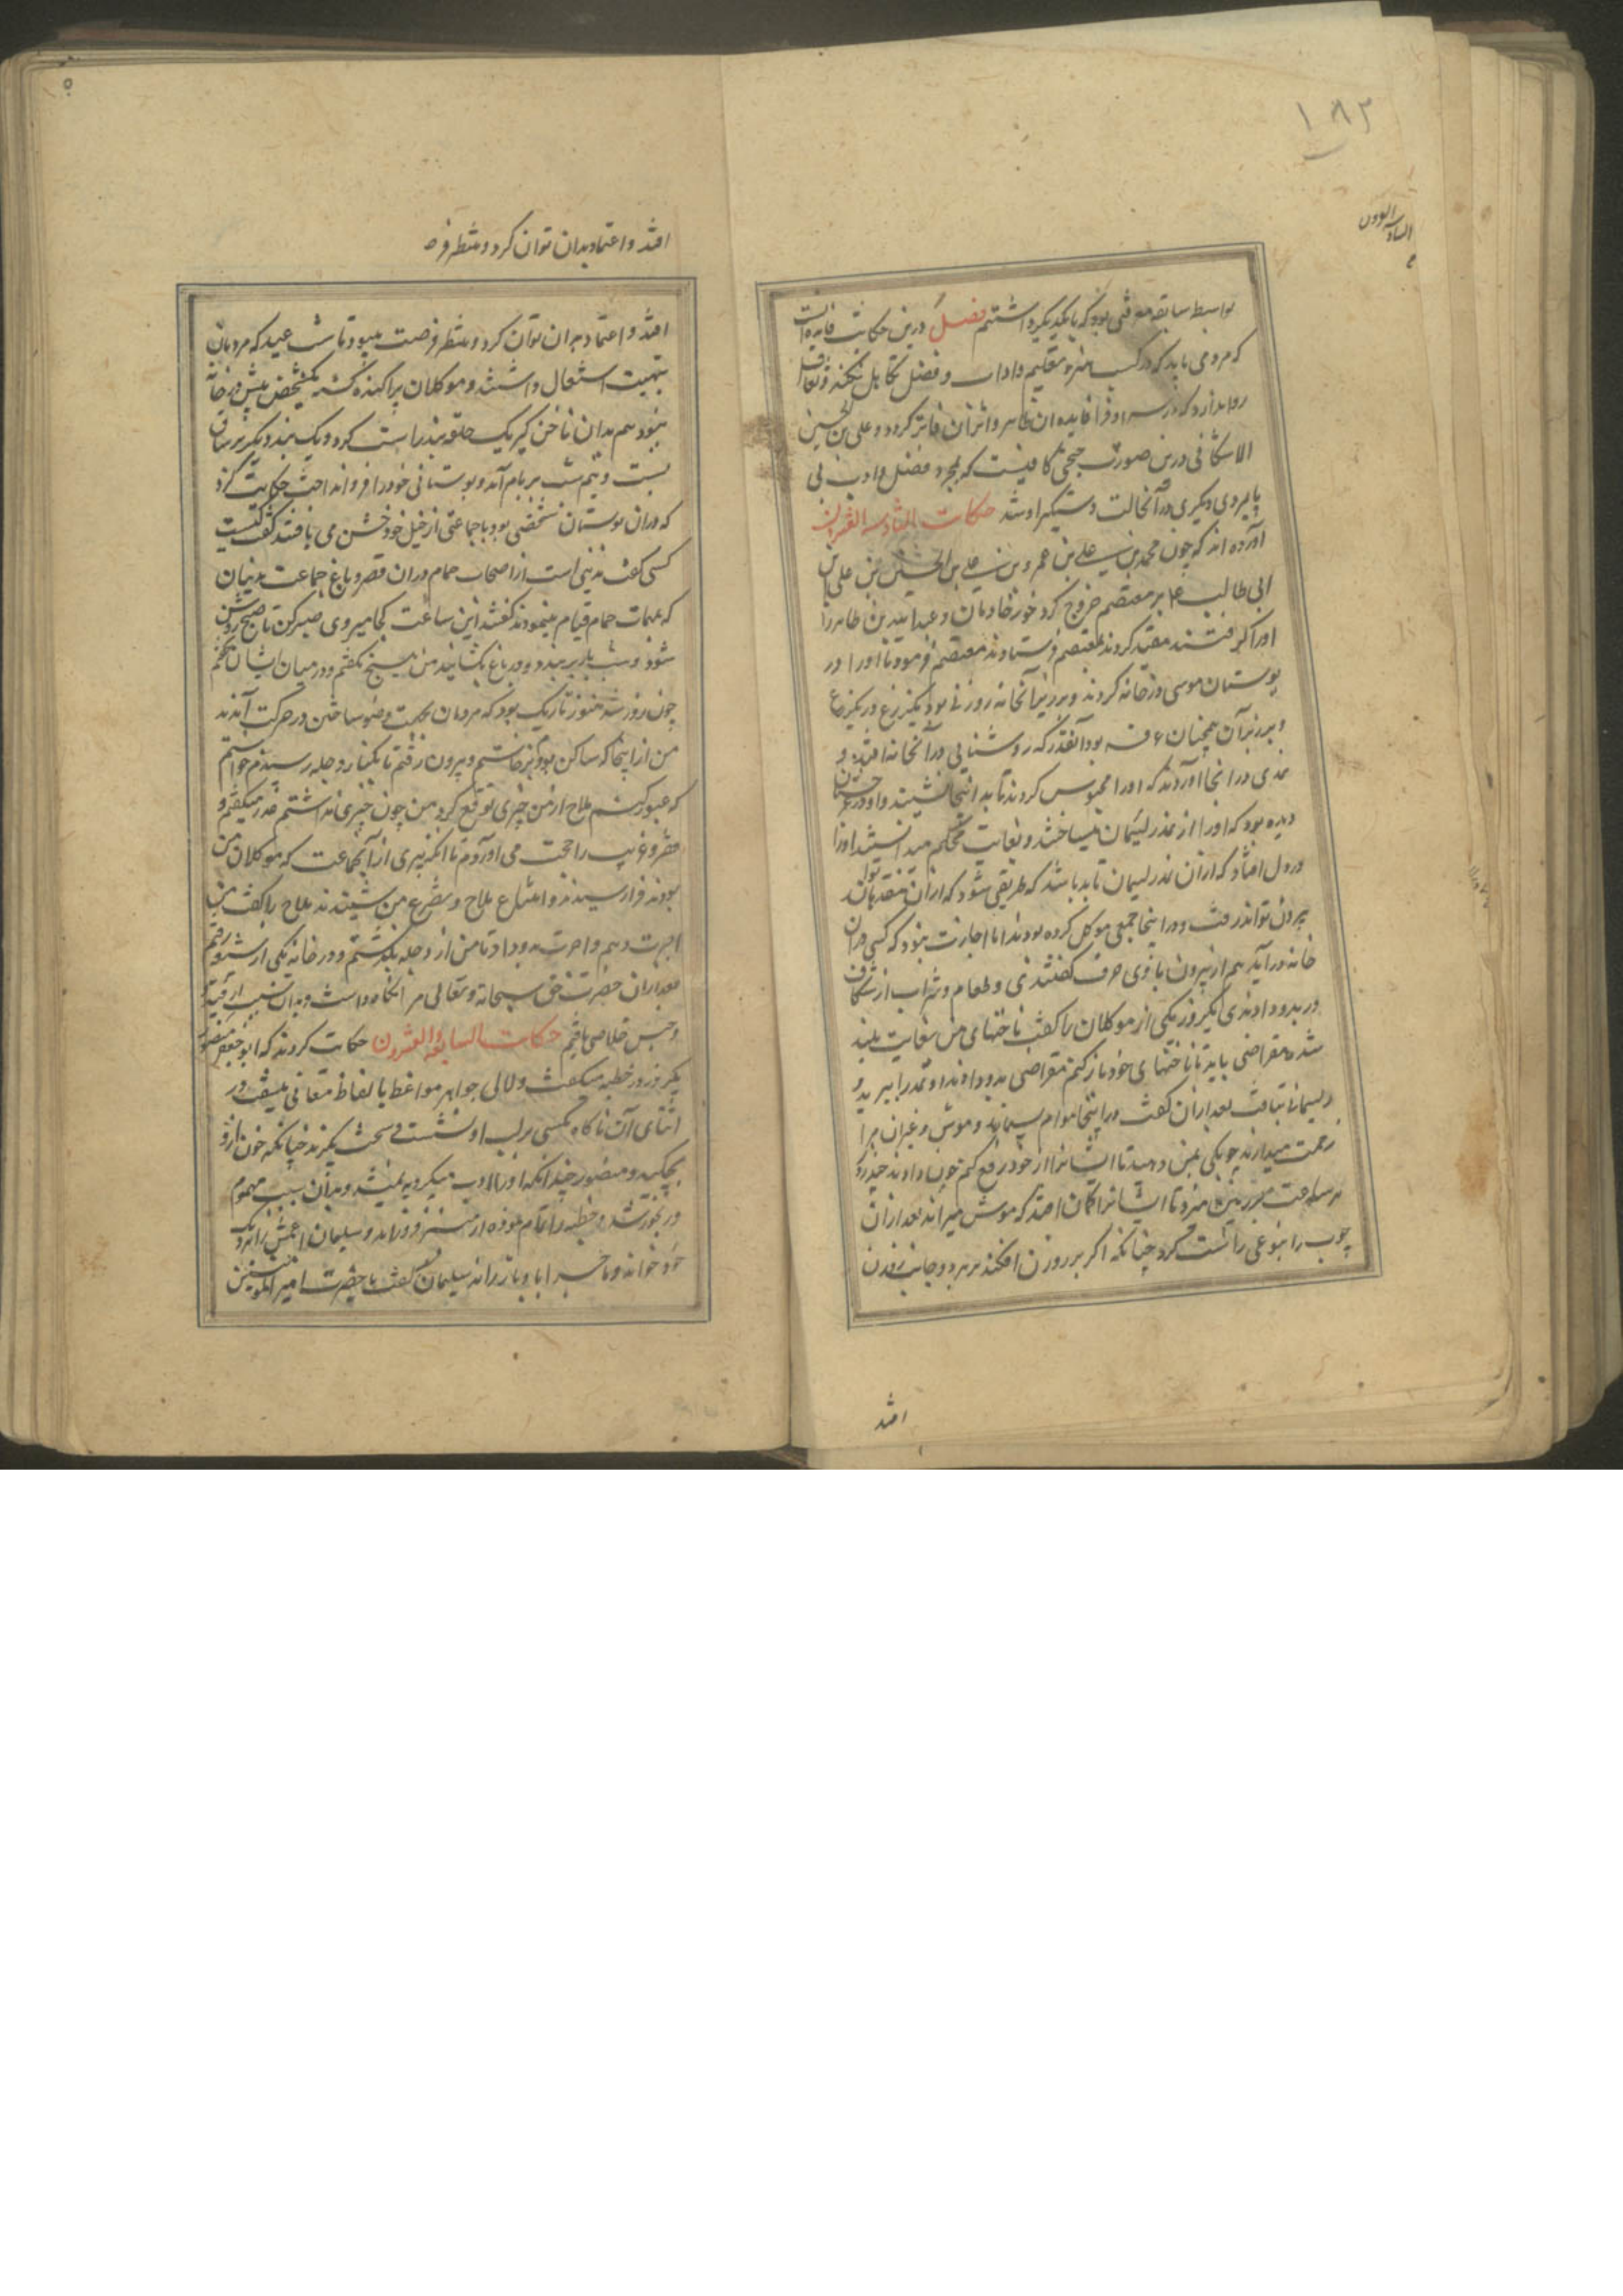 ۱۸۲
بواسطه سابقه معرفتی بود که با یکدیگر داشتیم فصل درین حکایت فایده آنست
که مردمی باید که در کسب هنر و تعلیم و اداب و فضل تکاهل نکند و تغافل
روا ندارد که هر سه او فرا فایده ان ظاهر و اثر آن فایز کردد و علی بن الحسین
الاسکافی درین صورت حجتی کافیست که بمجرد فضل و ادب بی
پایمردی دیکری در آنحالت دستکیر او شد حکایت السادسه العشرون
آورده اند که چون محمد بن علی بن عمرو بن علی بن الحسین بن علی بن
ابی طالب بر معتصم خروج کرد خورخادیان و عبدالله بن طاهر را
او را کرفتند مقید کردند بمعتصم فرستادند معتصم فرمود تا او را در
بوستان موسی در خانه کردند و بر زبر آنخانه روزنی بود یکیزع در یکیزع
و بر زبر آن همچنان قبه بود آنقدر که روشنایی در آنخانه افتد و
نمدی در انجا اوردند که او را محبوس کردند تا به آنجا نشیند و او در خراسان
دیده بود که او را از نمد ریسمان میساختند و بغایت محکم میدانستند او را
در دل افتاد که از آن نمد ریسمان تابد باشد که طریقی شود که از آن منفذ بدان
بیرون تواند رفت و در اینجا جمعی موکل کرده بودند اما اجازت نبود که کسی در ان
خانه در آید هم از بیرون با وی حرف کفتندی و طعام و شراب از شکاف
در بدو دادندی یکروز یکی از موکلان را کفت ناخنهای من بغایت بلند
شده مقراضی باید تا ناخنهای خود باز کنم مقراضی بدو دادند او نمد را ببرید و
ریسمانی بتافت بعد از آن کفت در اینجا هوام بسیارند و موش و غیر ان مرا
زحمت میدارند چوبکی بمن دهید تا ایشانرا از خود دفع کنم چوب دادند چند روز
هر ساعت بر زمین میزد تا ایشانرا کمان افتد که موش میراند بعد از آن
چوب را بنوعی راست کرد چنانکه اکر بر روزن افکند بر هر دو جانب روزن
افتد
افتد و اعتماد بدان توان کرد و منتظر فرصت
افتد و اعتماد بدان توان کرد و منتظر فرصت میبود تا شب عید که مردمان
بتهنیت اشتغال داشتند و موکلان پراکنده کشته یکشخص بیش در خانه
نبود هم بدان ناخن کیر یک حلقه بند راست کرد و یک بند دیکر بر ساق
بست و نیم شب بر بام آمد و بوستانی خود را فرو انداخت حکایت کرد
که در ان بوستان شخصی بود با جماعتی از خیل خود خشن می بافتند کفت کیست
کسی کفت مدینی است از اصحاب حمام در ان قصر و باغ جماعت مدنیان
که بمهمات حمام قیام مینمودند کفتند این ساعت کجا میروی صبر کن تا صبح روشن
شود و شب باز بر بندد و در باغ بکشایند من هیچ نکفتم و در میان ایشان بخفتم
چون روز شد هنوز تاریک بود که مردمان بجهت وضو ساختن در حرکت آمدند
من از اینجا که ساکن بودم برخاستم و بیرون رفتم تا بکنار دجله رسیدم خواستم
که عبور کنم ملاح از من چیزی توقع کرد من چون چیزی نداشتم عذر میکفتم و
فقر و غریب را حجت می آوردم تا اکثریری از آنجماعت که موکلان من
بودند فرا رسیدند و امتناع ملاح و تضرع من شنیدند ملاح را کفت من
اجرت دهم و اجرت بدو داد تا من از دجله بگذشتم و در خانه یکی از شیعه رفتم
بعد از ان حضرت حق سبحانه و تعالی مرا نکاه داشت و بدان سبب از قید
و حبس خلاصی یافتم حکایت السابعه والعشرون حکایت کردند که ابو جعفر منصور
یکروز در خطبه میکفت و لالی جواهر مواعظ بالفاظ معانی میسفت در
اثنای آن ناکاه مکسی بر لب او نشست و سخت بکزید چنانکه خون از او
بچکید و منصور چندانکه او را ادب میکرد به نمیشد و بدان سبب مهموم
و رنجور شد و خطبه را تمام نموده از منبر فرود آمد و سلیمان اعمش را نزد
خود خواند سلیمان کفت یا حضرت امیر المومنین